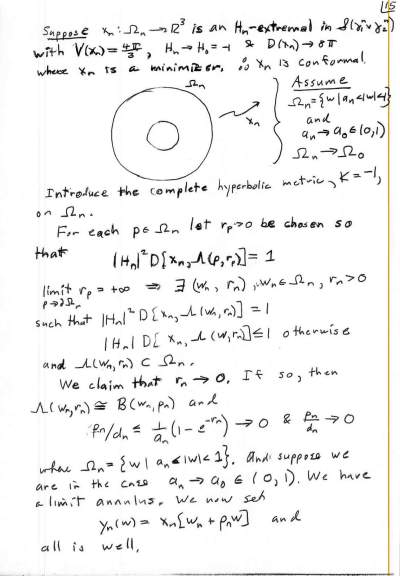 115
Suppose xₙ: Ωₙ → ℝ³ is an Hₙ-extremal in
with V(xₙ) = 4π/3, Hₙ → H₀ = -1 & D(xₙ) → 8π
where xₙ is a minimizer, ∴ xₙ is conformal.
Ωₙ
Assume
Ωₙ = {w | aₙ < |w| < 1}
and
aₙ → a₀ ∈ (0,1)
xₙ
Ωₙ → Ω₀
Introduce the complete hyperbolic metric, K = -1,
on Ωₙ.
For each p ∈ Ωₙ let rₚ > 0 be chosen so
that |Hₙ|² D[xₙ, Λ(p, rₚ)] = 1
limit rₚ = +∞ ⇒ ∃ (wₙ, rₙ), wₙ ∈ Ωₙ, rₙ > 0
p → ∂Ωₙ
such that |Hₙ|² D[xₙ, Λ(wₙ, rₙ)] = 1
|Hₙ| D[xₙ, Λ(w, rₙ)] ≤ 1 otherwise
and Λ(wₙ, rₙ) ⊂ Ωₙ.
We claim that rₙ → 0. If so, then
Λ(wₙ, rₙ) ≅ B(wₙ, ρₙ) and
ρₙ/dₙ ≤ 1/aₙ (1 - e^{-rₙ}) → 0 & ρₙ/dₙ → 0
where Ωₙ = {w | aₙ < |w| < 1}. And suppose we
are in the case aₙ → a₀ ∈ (0, 1). We have
a limit annulus. We now set
yₙ(w) = xₙ[wₙ + ρₙw] and
all is well.